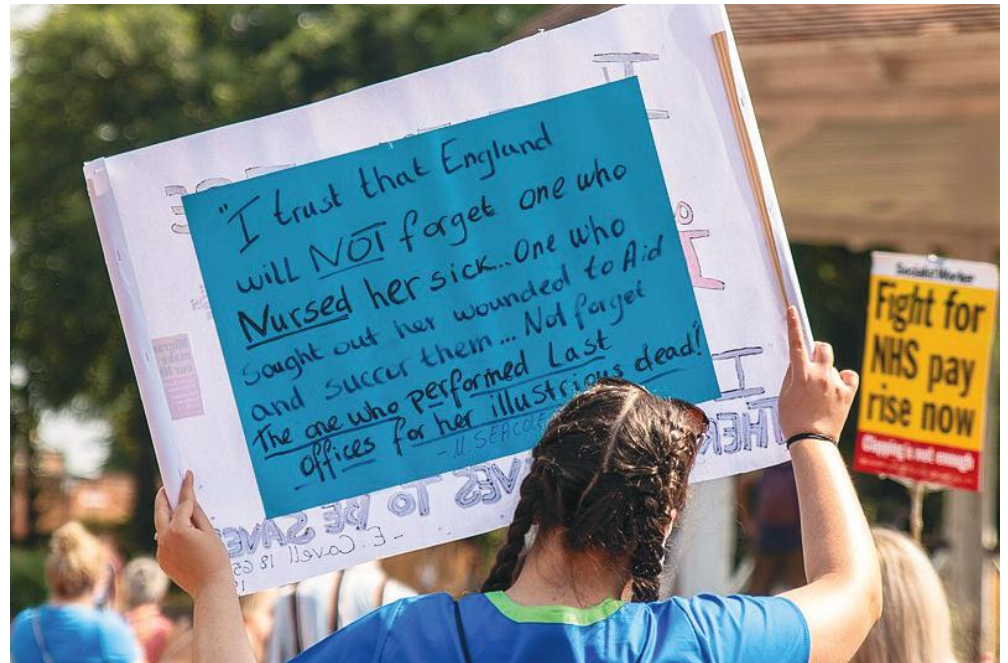 "I trust that England
will NOT forget one who
Nursed her sick... One who
sought out her wounded to Aid
and succur them... Not forget
The one who performed Last
offices for her illustrious dead!"
Socialist Worker
Fight for
NHS pay
rise now
Clapping is not enough
LIVES TO BE SAVED
- E. Cavell